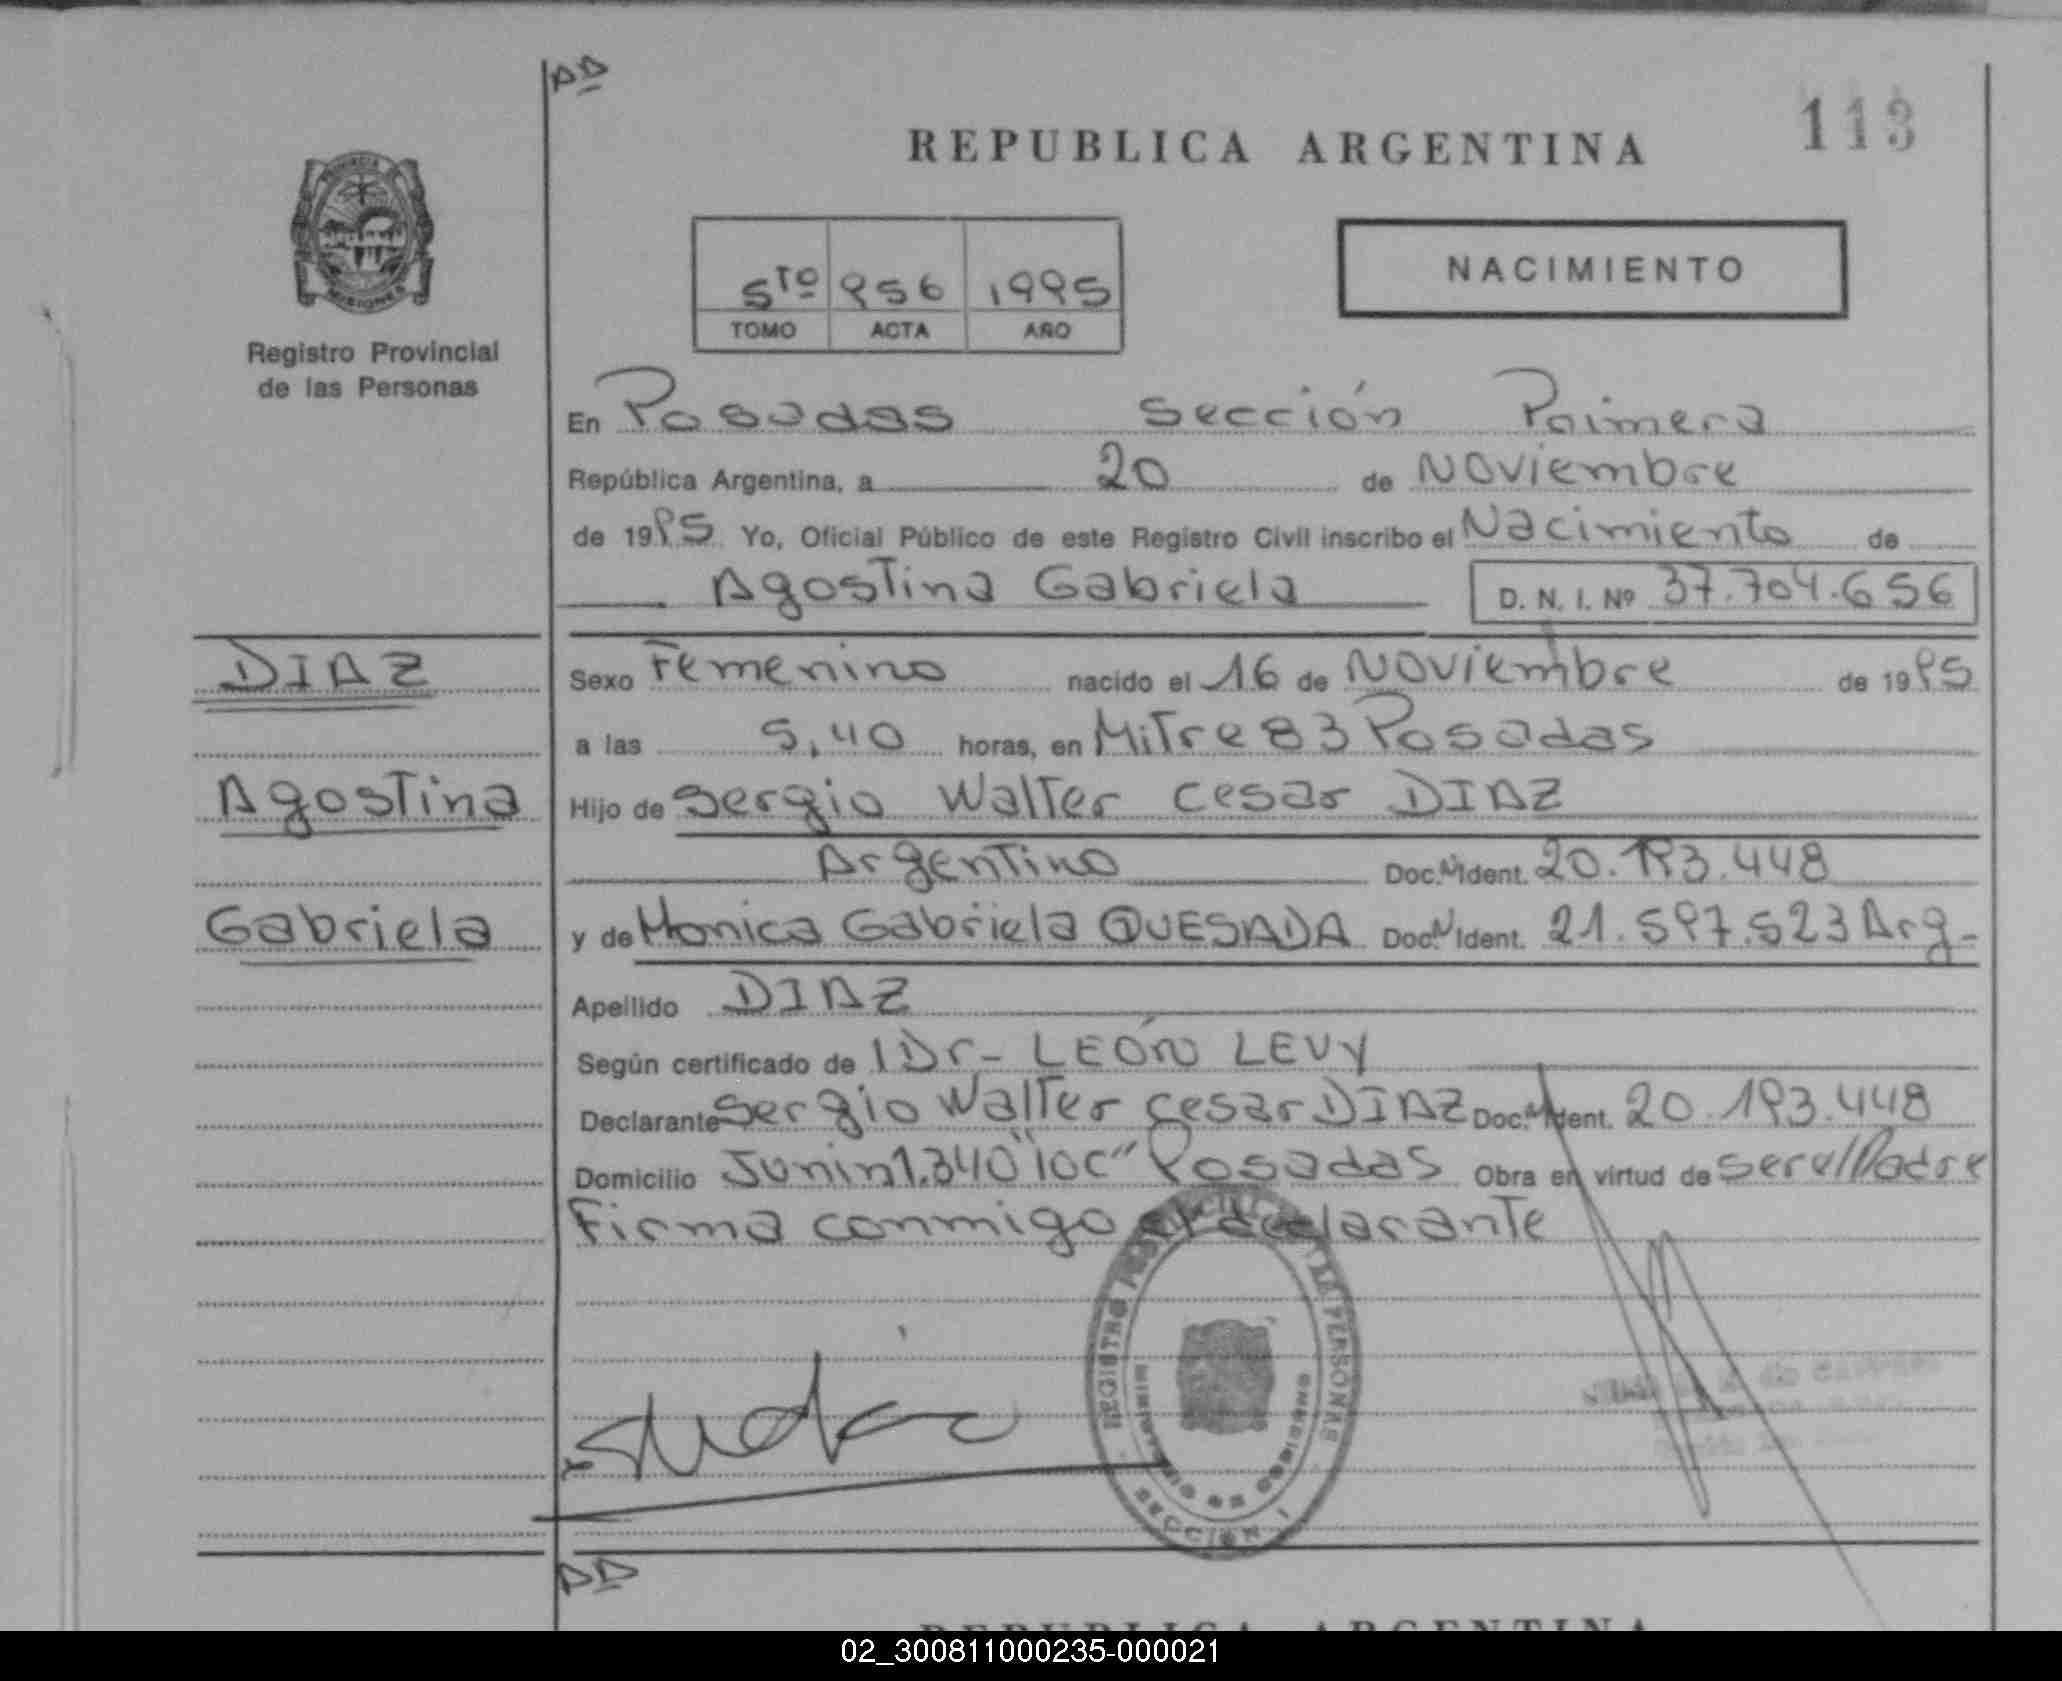 DD
REPUBLICA ARGENTINA
113
PROVINCIA DE
MISIONES
Registro Provincial
de las Personas
5to 956 1995
TOMO ACTA AÑO
NACIMIENTO
En Posadas Sección Primera
República Argentina, a 20 de Noviembre
de 1995 Yo, Oficial Público de este Registro Civil inscribo el Nacimiento de
Agostina Gabriela D. N. I. Nº 37.704.656
DIAZ
Agostina
Gabriela
Sexo Femenino nacido el 16 de Noviembre de 1995
a las 5,40 horas, en Mitre 83 Posadas
Hijo de Sergio Walter Cesar DIAZ
Argentino Doc. Nº Ident. 20.193.448
y de Monica Gabriela QUESADA Doc. Nº Ident. 21.597.523 Arg-
Apellido DIAZ
Según certificado de Dr- LEÓN LEVY
Declarante Sergio Walter Cesar DIAZ Doc. Nº Ident. 20.193.448
Domicilio Junin 1.340 "10C" Posadas Obra en virtud de ser el Padre
Firma conmigo el declarante
REGISTRO PROVINCIAL DE LAS PERSONAS
MINISTERIO DE GOBIERNO
SECCION I
DD
REPUBLICA ARGENTINA
02_300811000235-000021